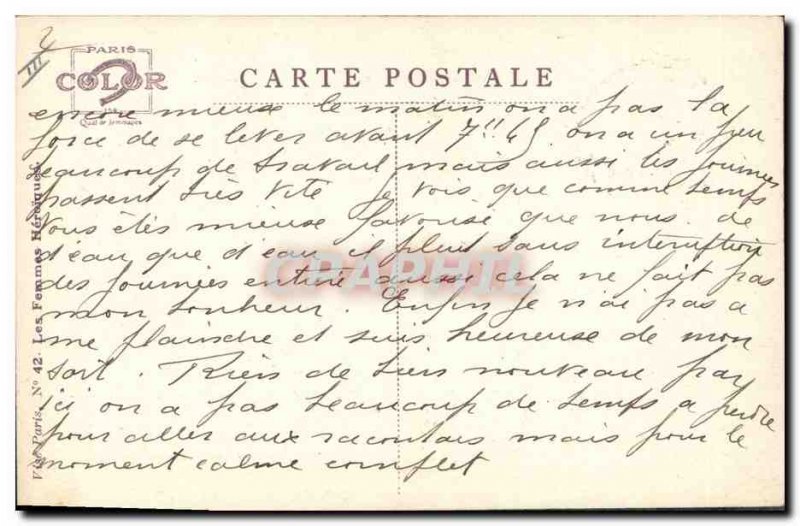 2
III
PARIS
COLOR
CARTE POSTALE
encore mieux le matin on a pas la
force de se lever avant 7" 45 on a un peu
beaucoup de travail mais aussi les journées
passent très vite Je vois que comme temps
Vous êtes mieuse favorisé que nous. de
d'eau que d'eau il pleut sans interruption
des journées entière aussi cela ne fait pas
mon bonheur. Enfin Je n'ai pas a
me plaindre et suis heureuse de mon
sort. Riens de bien nouveau par
ici on a pas beaucoup de temps a perdre
pour aller aux racontars mais pour le
moment calme complet
Visé Paris. No 42. Les Femmes Héroïques.
CPAPHIL